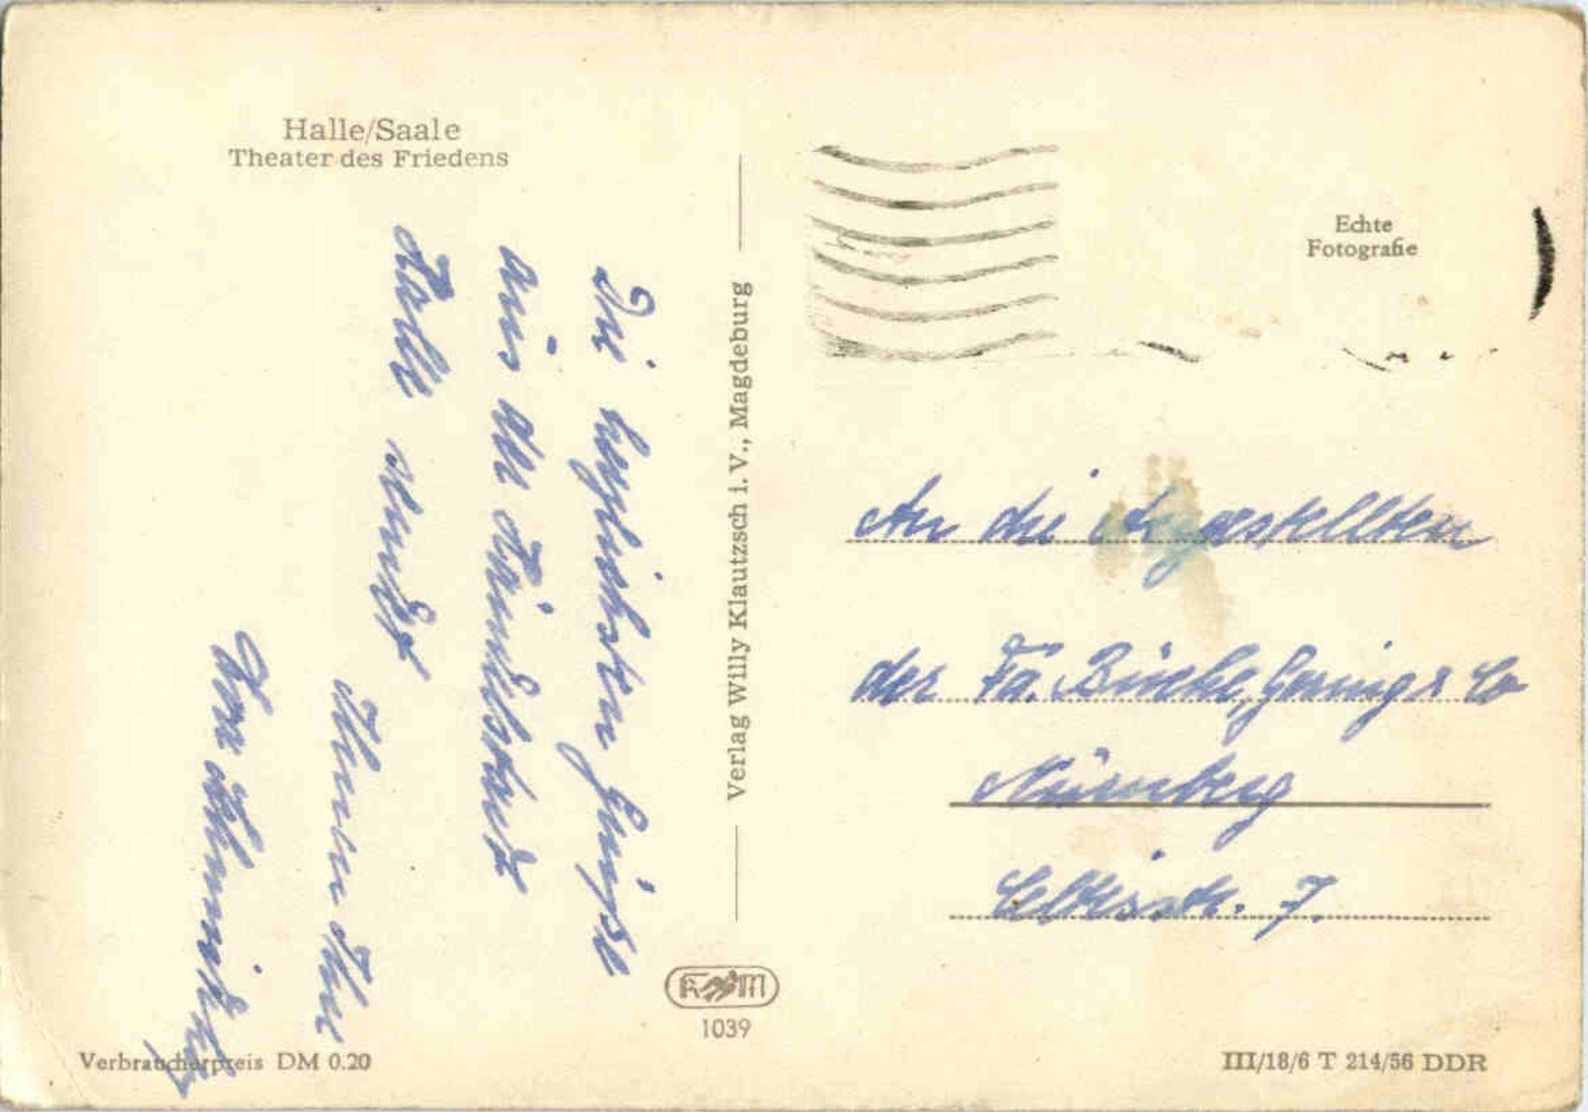 Halle/Saale
Theater des Friedens
Die herzlichsten Grüße
aus dem
Halle sendet
Ihnen Ihre
Verlag Willy Klautzsch i. V., Magdeburg
1039
Verbraucherpreis DM 0.20
Echte
Fotografie
An die Angestellten
der Fa. & Co
Nürnberg
Celtisstr. 7.
III/18/6 T 214/56 DDR